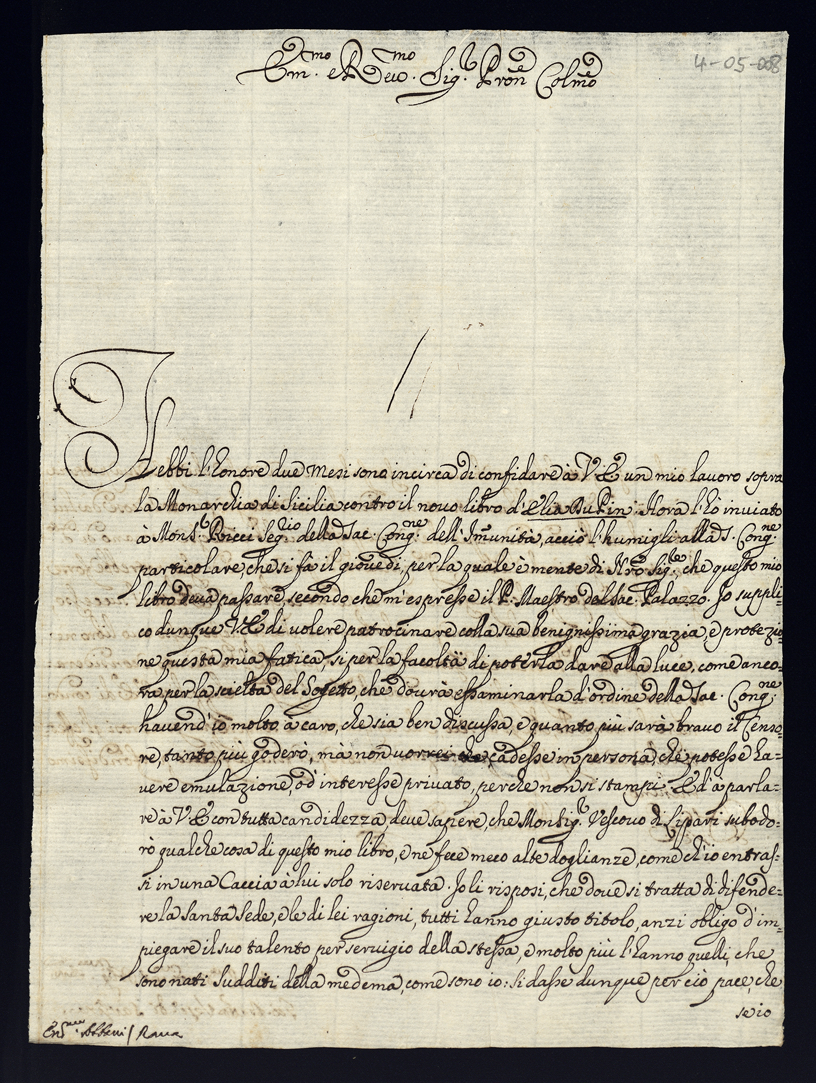 Em.mo e Reu.mo Sig.r Pron̄e Colmo
4-05-008
Hebbi l'honore due Mesi sono incirca di confidare à V E un mio lavoro sopra
la Monarchia di Sicilia contro il novo libro d'Elia Du Pin. Hora l'hò inviato
à Mons.r Ricci Seg.rio della Sac. Cong.ne dell'Im̄unità, acciò l'humigli alla S. Cong.ne
particolare, che si fà il giovedi, per la quale è mente di Nrō Sig.re che questo mio
libro deva passare, secondo che m'espresse il P. Maestro del Sac. Palazzo. Io suppli-
co dunque V E di volere patrocinare colla sua benignissima grazia, e protezio-
ne questa mia fatica, si per la facoltà di poterla dare alla luce, come anco-
ra per la scielta del Sogetto, che dourà essaminarla d'ordine della Sac. Cong.ne
havend'io molto à caro, che sia ben discussa, e quanto più sarà bravo il Censo-
re, tanto più goderò, mà non vorrei che cadesse in persona, che potesse ha-
vere emulazione, od'interesse privato, perche non si stampi. Ed'à parla-
re à V E con tutta candidezza, deve sapere, che Monsig.r Vescovo di Lipari subodo-
rò qualche cosa di questo mio libro, e ne fece meco alte doglianze, come ch'io entras-
si in una Caccia à lui solo riseruata. Io li risposi, che dove si tratta di difende-
re la Santa Sede, e le di lei ragioni, tutti hanno giusto titolo, anzi obligo d'im-
piegare il suo talento per servigio della stessa, e molto più l'hanno quelli, che
sono nati Sudditi della medema, come sono io: si dasse dunque per ciò pace, che
se io